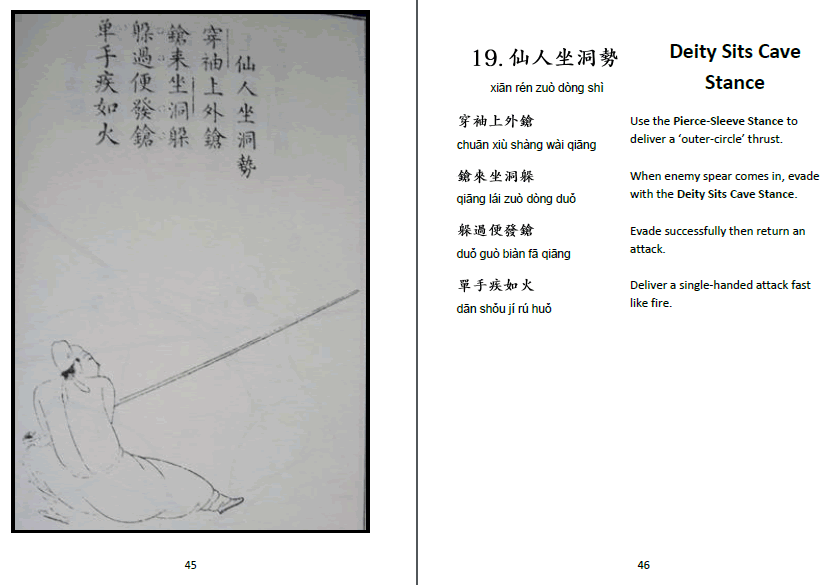 仙人坐洞勢
穿袖上外鎗
鎗来坐洞躱
躱過便發鎗
单手疾如火
45
19. 仙人坐洞勢
xiān rén zuò dòng shì
Deity Sits Cave
Stance
穿袖上外鎗
chuān xiù shàng wài qiāng
Use the Pierce-Sleeve Stance to
deliver a ‘outer-circle’ thrust.
鎗來坐洞躱
qiāng lái zuò dòng duǒ
When enemy spear comes in, evade
with the Deity Sits Cave Stance.
躱過便發鎗
duǒ guò biàn fā qiāng
Evade successfully then return an
attack.
單手疾如火
dān shǒu jí rú huǒ
Deliver a single-handed attack fast
like fire.
46